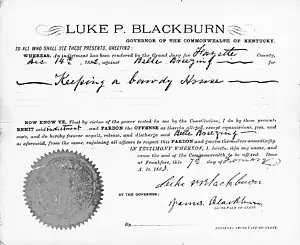 LUKE P. BLACKBURN
GOVERNOR OF THE COMMONWEALTH OF KENTUCKY.
TO ALL WHO SHALL SEE THESE PRESENTS, GREETING:
WHEREAS, An indictment has been rendered by the Grand Jury for Fayette County,
Dec 14th 1882, against Belle Brezing for
Keeping a bawdy House
NOW KNOW YE, That by virtue of the power vested in me by the Constitution, I do by these presents
REMIT said indictment and PARDON the OFFENSE as therein alleged, except reparations, fees, and
costs, and do hereby forever acquit, release, and discharge said Belle Brezing
as aforesaid, from the same, enjoining all officers to respect this PARDON and govern themselves accordingly.
IN TESTIMONY WHEREOF, I, hereto, sign my name, and
cause the seal of the Commonwealth to be affixed. Done
at Frankfort, this 7th day of
A. D. 1883.
Luke P Blackburn
BY THE GOVERNOR:
James Blackburn
SECRETARY OF STATE.
By
ASSISTANT SECRETARY OF STATE.